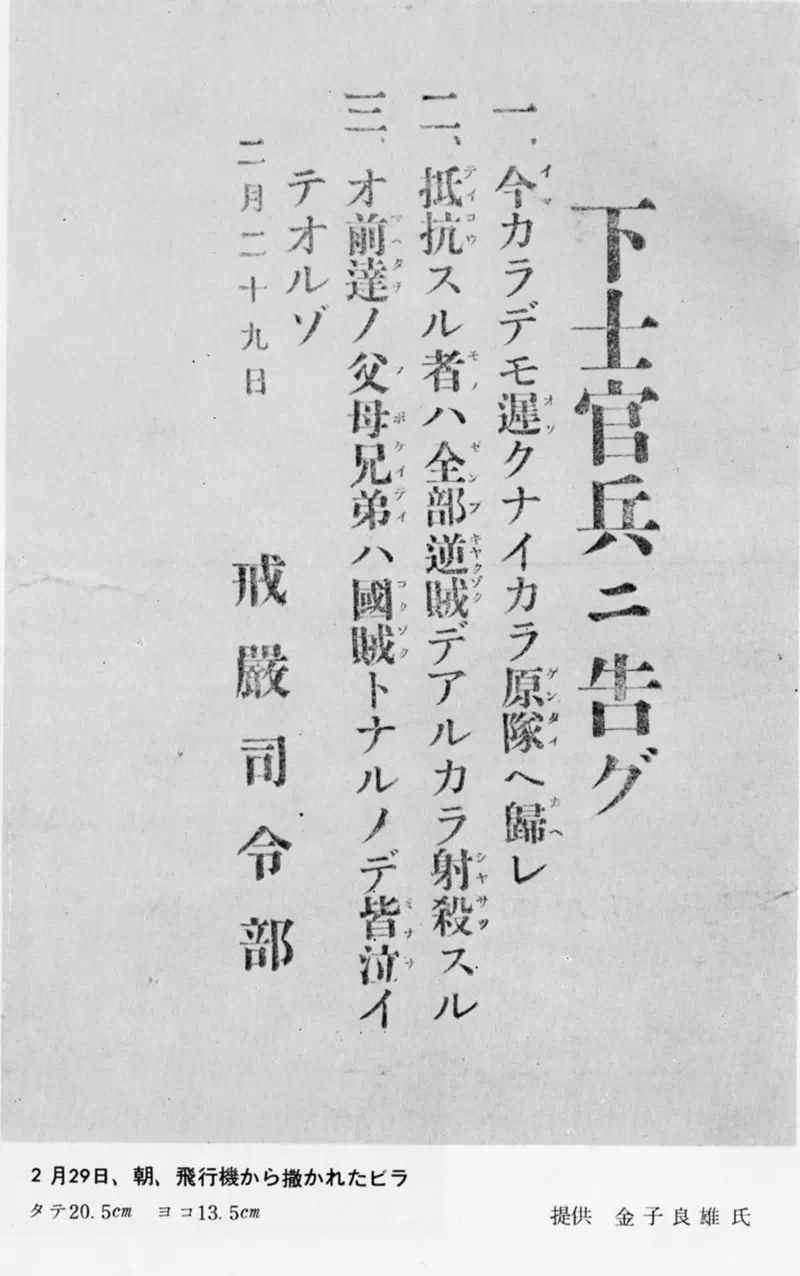 下士官兵ニ告グ
一、今カラデモ遲クナイカラ原隊ヘ歸レ
二、抵抗スル者ハ全部逆賊デアルカラ射殺スル
三、オ前達ノ父母兄弟ハ國賊トナルノデ皆泣イ
テオルゾ
二月二十九日
戒嚴司令部
2月29日、朝、飛行機から撒かれたビラ
タテ20.5cm ヨコ13.5cm
提供 金子良雄氏